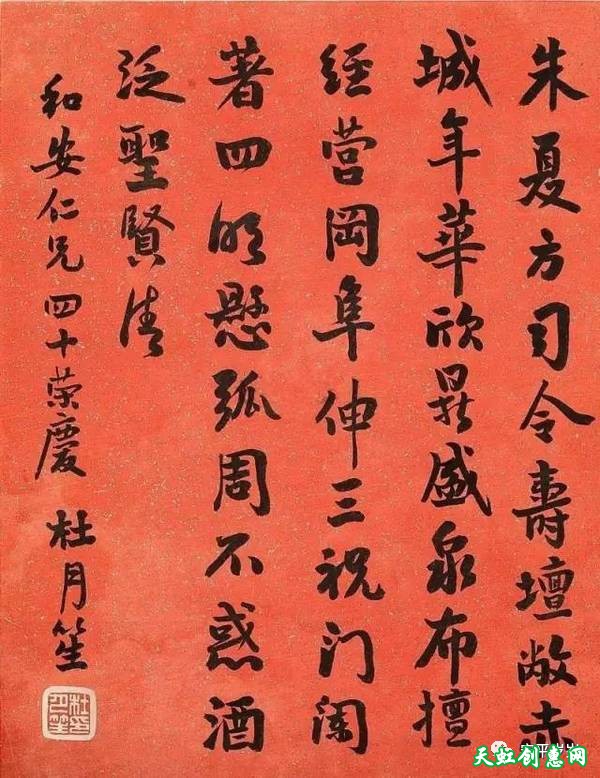 朱夏方司令壽壇敞赤
城年華欣鼎盛泉布擅
經营岡阜伸三祝门闌
著四明懸弧周不惑酒
泛聖賢清
和安仁兄四十荣慶 杜月笙
天虹创惠网